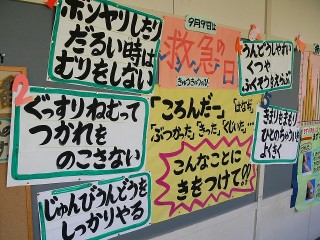 ボンヤリしたり
だるい時は
むりをしない
9月9日は
救急の日
きゅうきゅうのひ
うんどうしやすい
くつや
ふくそうをえらぶ
2
ぐっすりねむって
つかれを
のこさない
「ころんだー」
「はなぢ」
「ぶつかった」「きった」「くじいた」…
こんなことに
きをつけて!!
きまりをまもり
ひとのちゅういを
よくきく
じゅんびうんどうを
しっかりやる